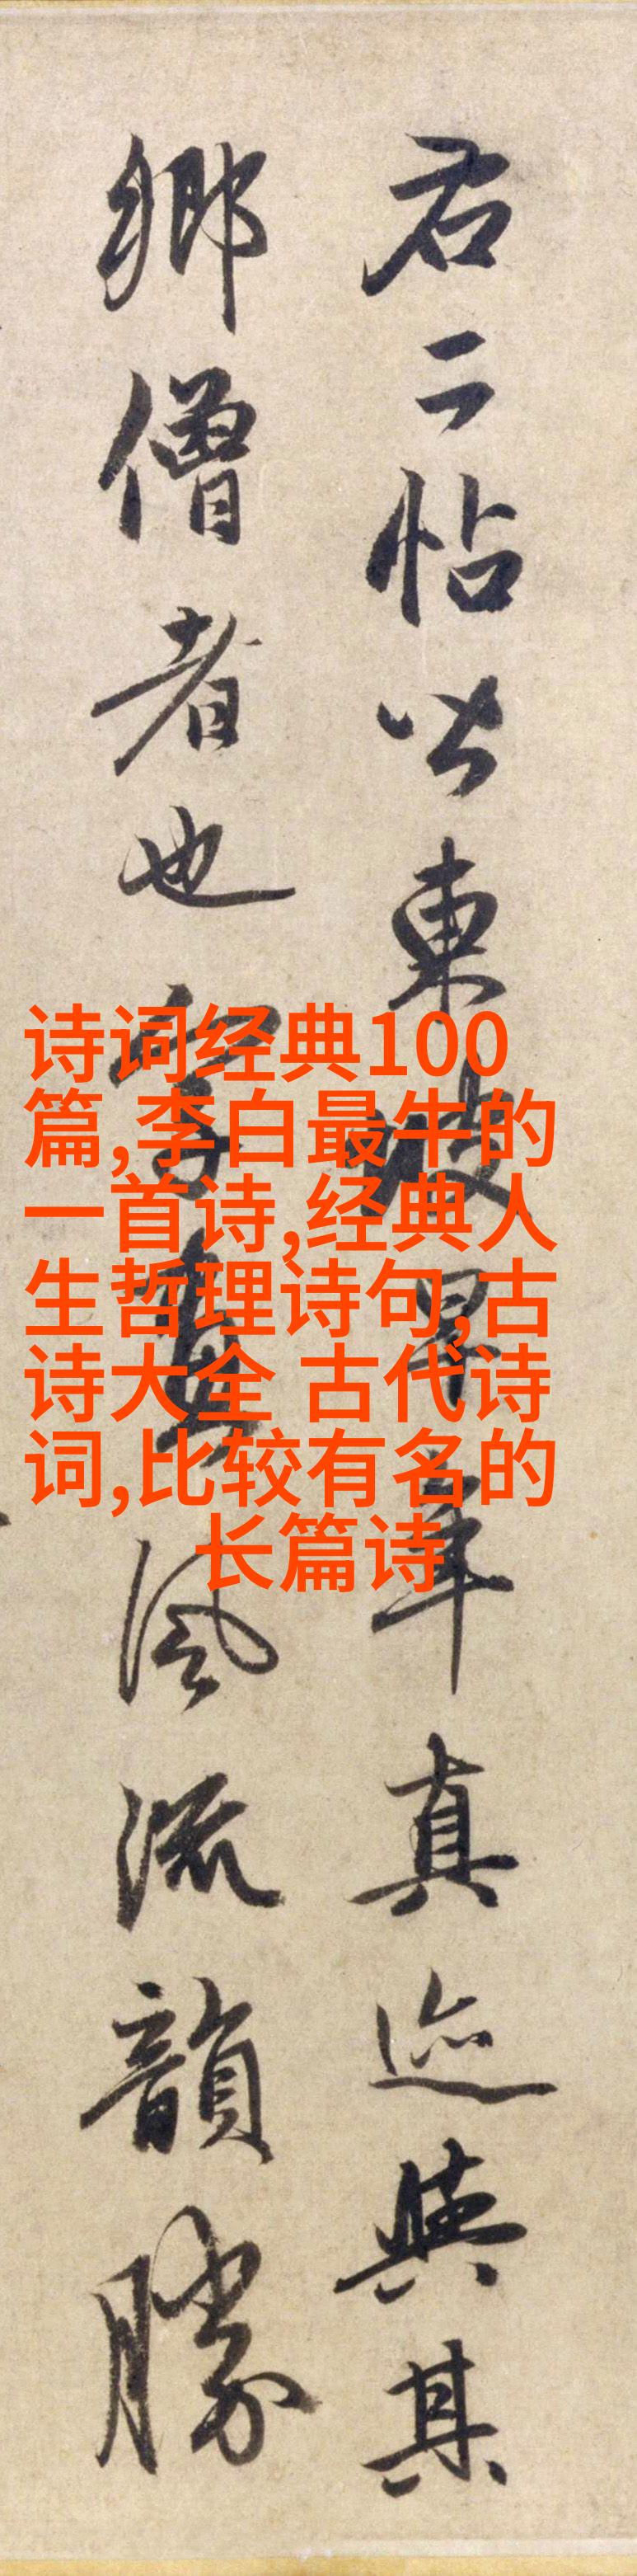 右二帖皆東坡早年真迹與其
鄉僧者也字畫風流韻勝
诗词经典100
篇,李白最牛的
一首诗,经典人
生哲理诗句,古
诗大全 古代诗
词,比较有名的
长篇诗